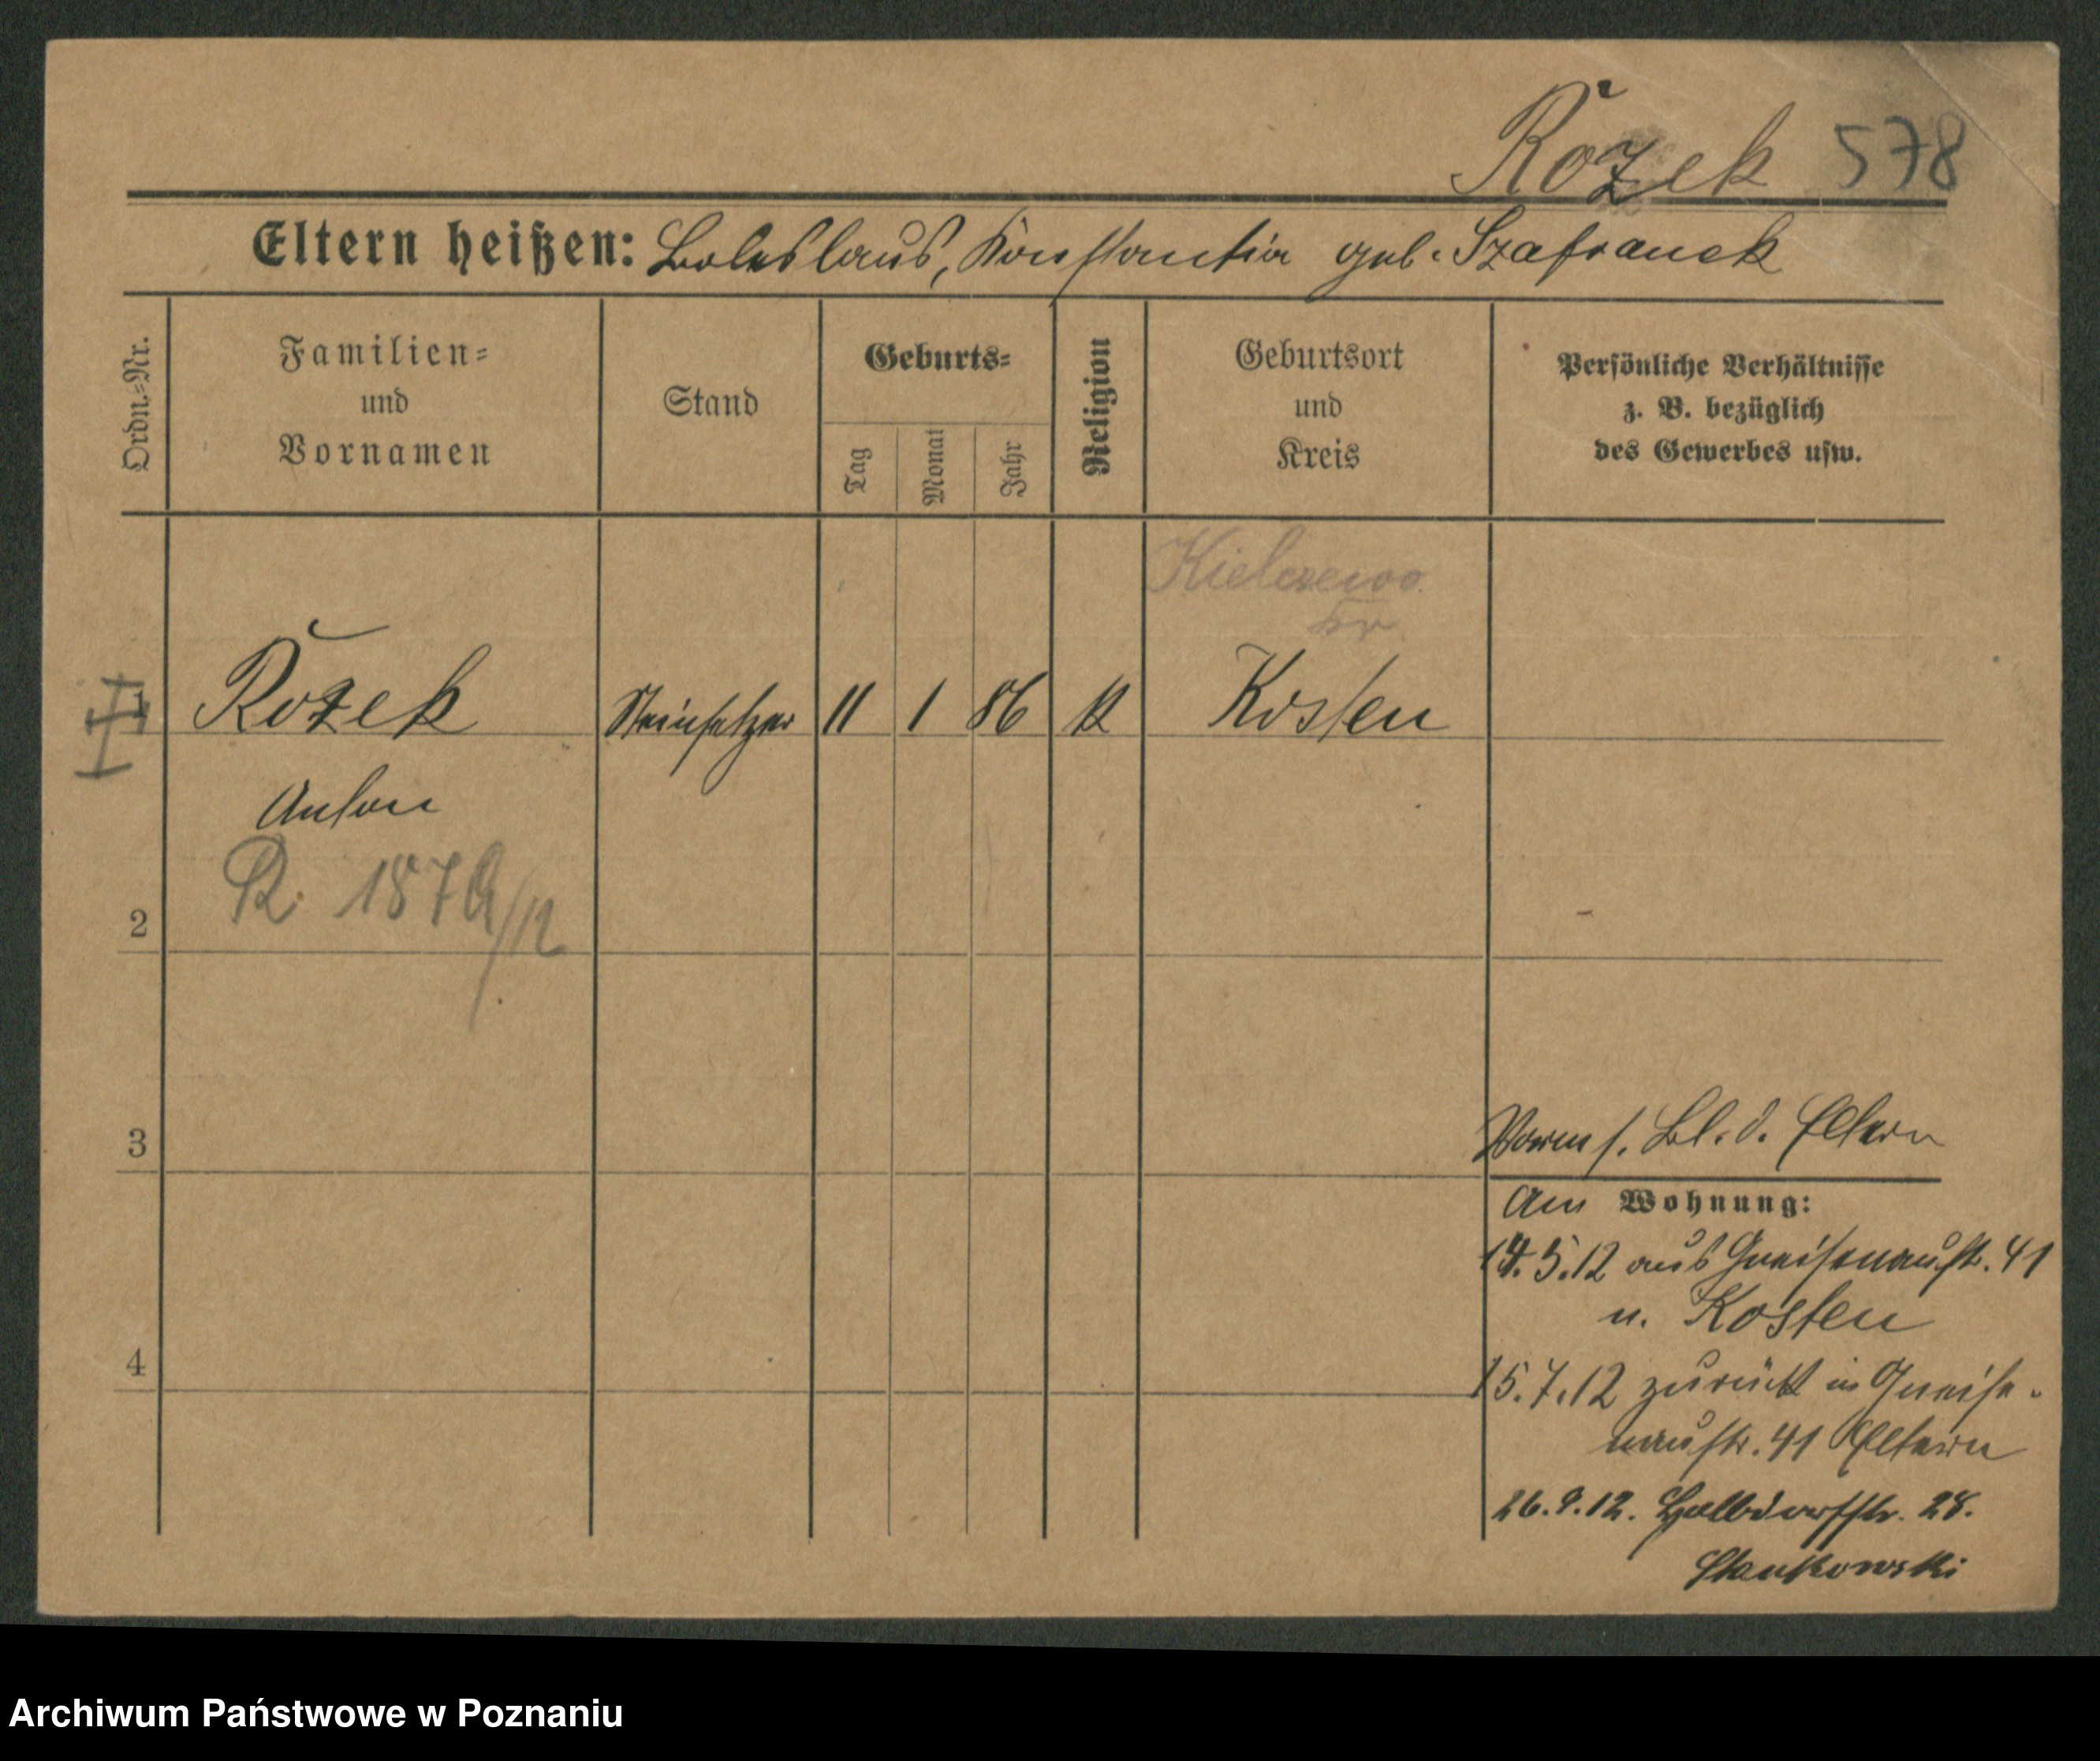 Rożek 578
Eltern heißen: Boleslaus, Konstantia geb. Szafranek
Ordn.=Nr.
Familien=
und
Vornamen
Stand
Geburts=
Tag
Monat
Jahr
Religion
Geburtsort
und
Kreis
Persönliche Verhältnisse
z. B. bezüglich
des Gewerbes usw.
Kielczewo
Kr.
1 Rożek Steinsetzer 11 1 86 K Kosten
Anton
R.
2
3
Vorm s. Bl. d. Eltern
Am Wohnung:
14.5.12 aus Gneisenaustr. 41
n. Kosten
4
15.7.12 zurück in Gneise-
naustr. 41 Eltern
26.9.12. Halbdorfstr. 28.
Stankowski
Archiwum Państwowe w Poznaniu